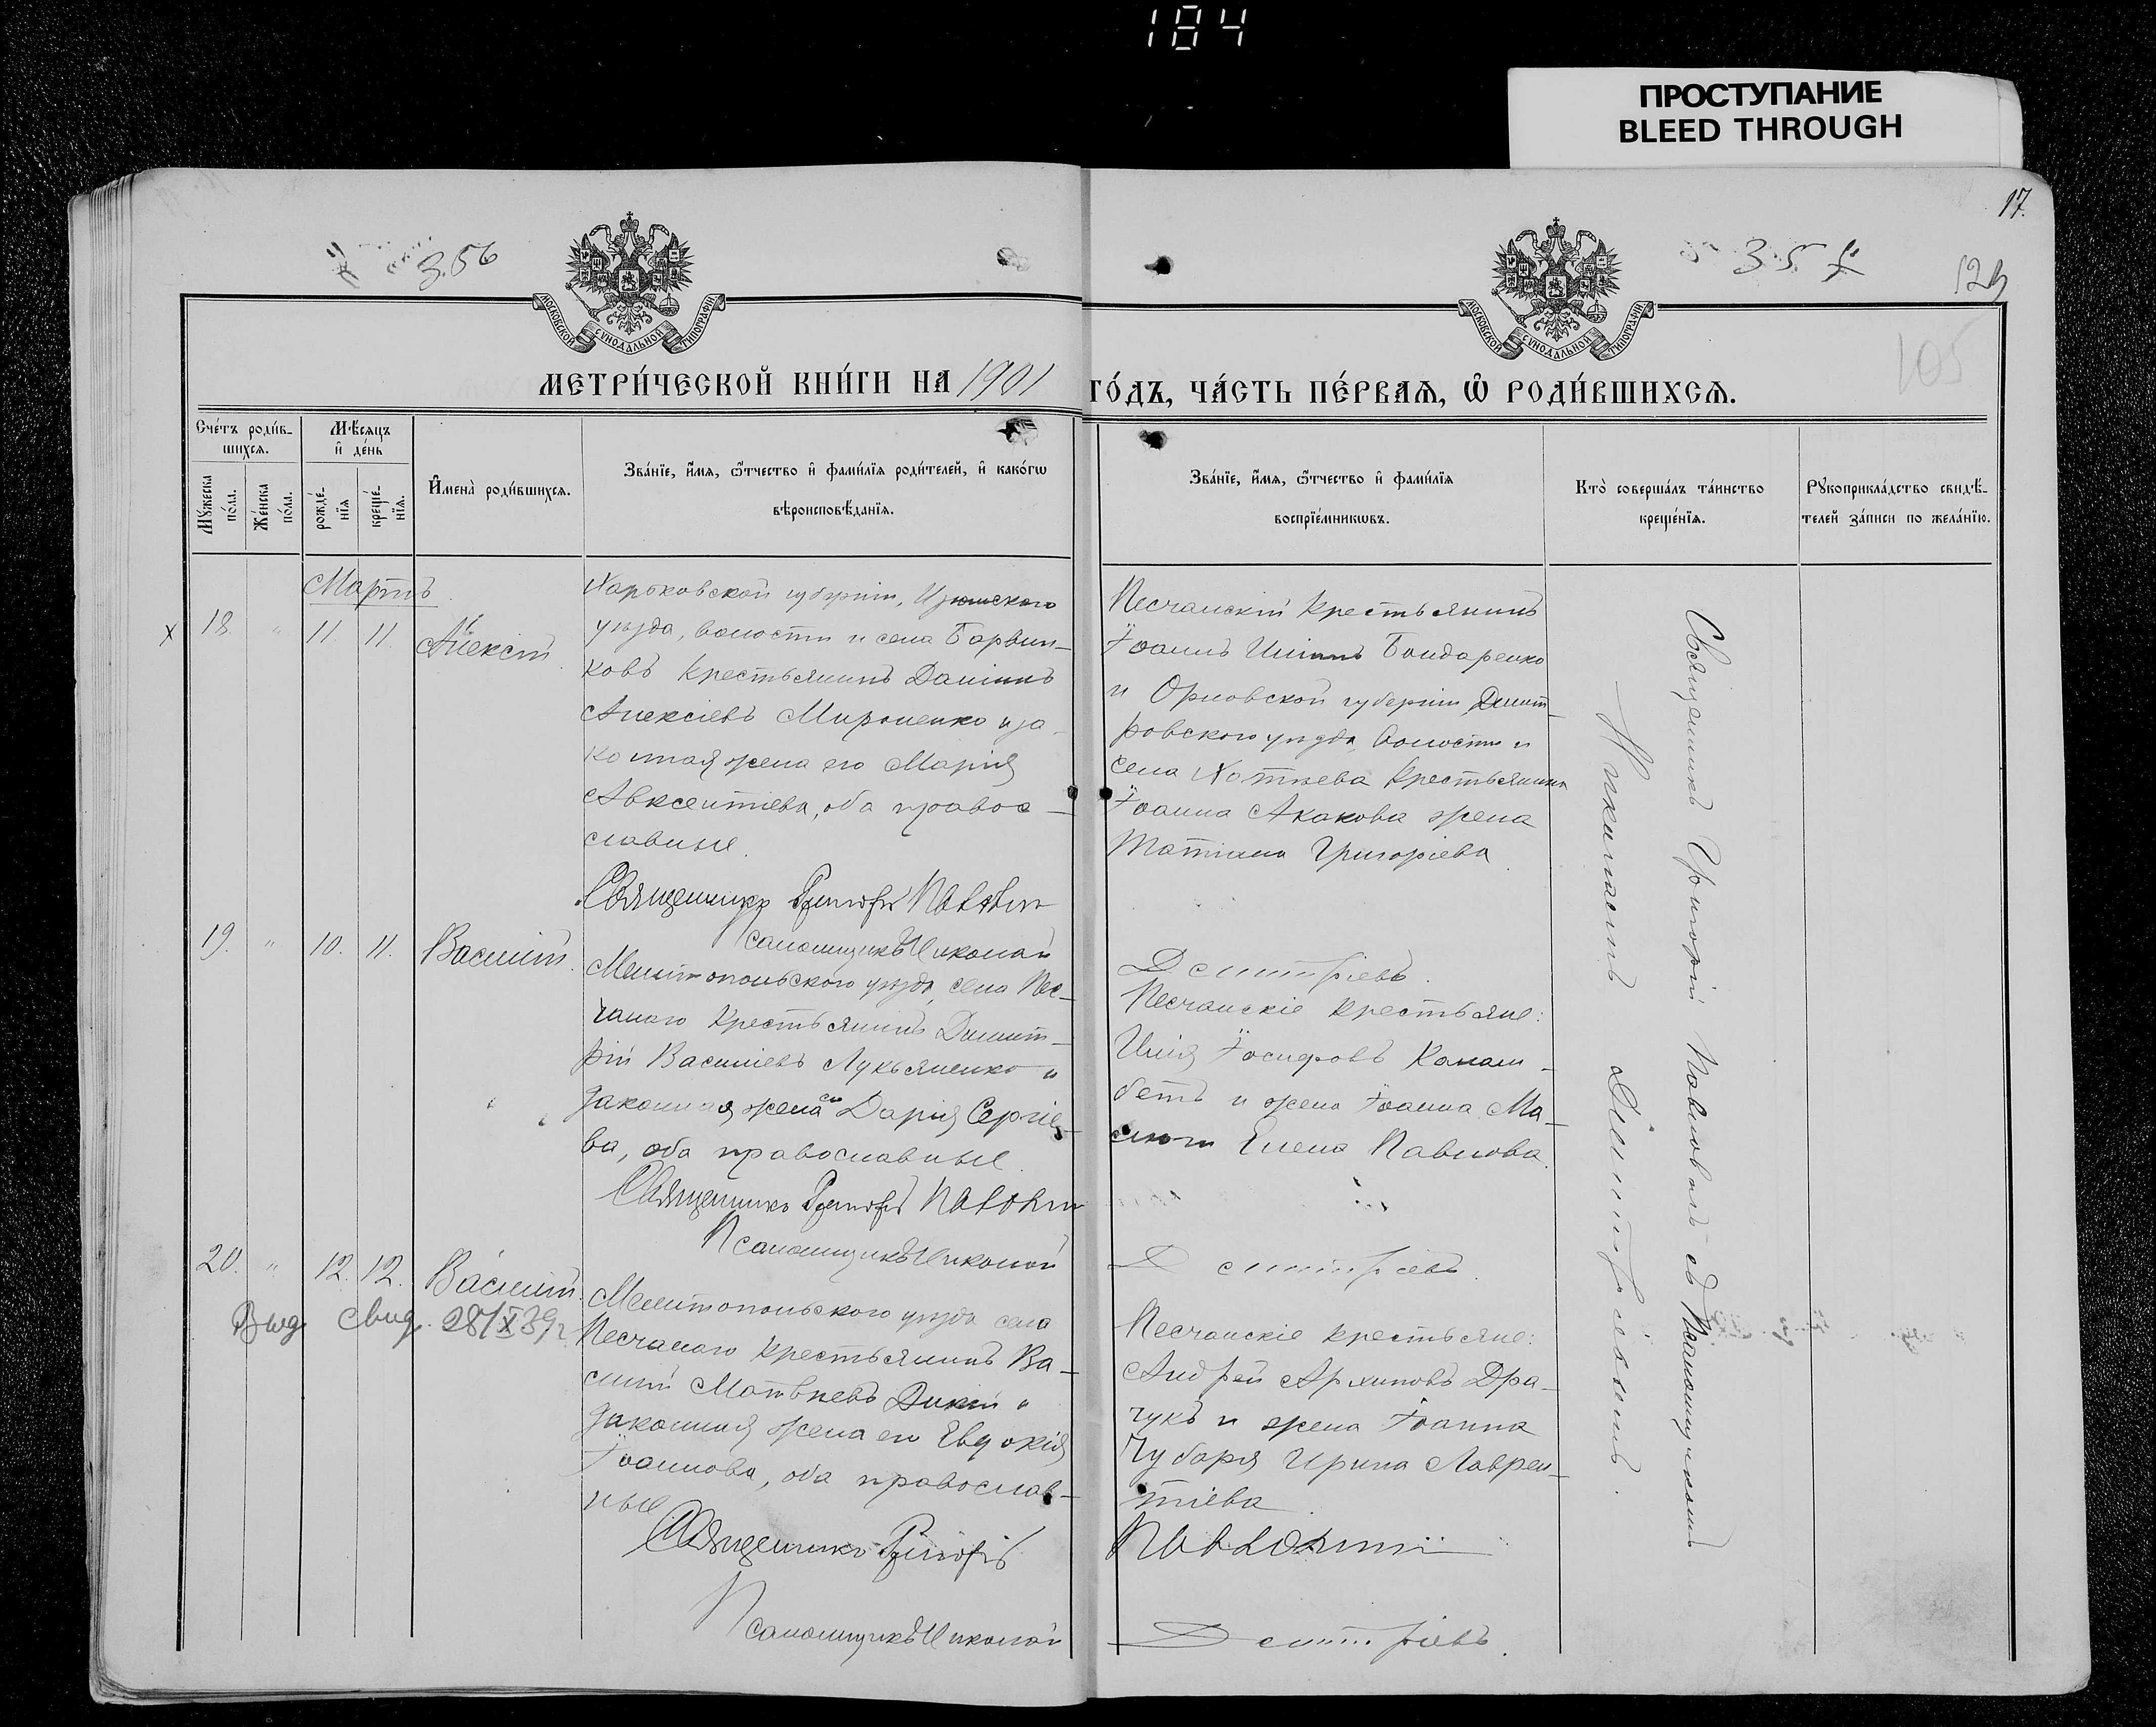 184
ПРОСТУПАНИЕ
BLEED THROUGH
17.
356
129
105
МОСКОВСКОЙ СѴНОДАЛЬНОЙ ТИПОГРАФІИ
МОСКОВСКОЙ СѴНОДАЛЬНОЙ ТИПОГРАФІИ
МЕТРИ́ЧЕСКОЙ КНИ́ГИ НА 1901 ГО́ДЪ, ЧА́СТЬ ПЕ́РВАѦ, Ѡ҆ РОДИ́ВШИХСѦ.
Сче́тъ роди́в-
шихсѧ.
Мꙋ́жеска
по́ла.
Же́нска
по́ла.
Мѣ́сѧцъ
и҆ де́нь
рожде́-
нїѧ
креще́-
нїѧ.
И҆мена̀ роди́вшихсѧ.
Зва́нїе, и҆́мѧ, ѻ҆́тчество и҆ фами́лїѧ роди́телей, и҆ како́гѡ
вѣроисповѣ́данїѧ.
Зва́нїе, и҆́мѧ, ѻ҆́тчество и҆ фами́лїѧ
воспрїе́мникѡвъ.
Кто̀ соверша́лъ та́инство
креще́нїѧ.
Рꙋкоприкла́дство свидѣ́-
телей за́писи по жела́нїю.
Мартъ
18. " 11. 11. Алексій
Харьковской губерніи, Изюмскаго
уѣзда, волости и села Барвин-
ковъ крестьянинъ Даніилъ
Алексіевъ Мироненко и за-
конная жена его Марія
Авксентіева, оба правос-
славные.
Священникъ Григорій Павловичъ
Псаломщикъ Николай Димитріевъ.
Песчанскій крестьянинъ
Іоаннъ Иліинъ Бондаренко
и Орловской губерніи Димит-
ровскаго уѣзда, волости и
села Хотѣева крестьянина
Іоанна Акакова жена
Татіана Григоріева
19. " 10. 11. Василій.
Мелитопольскаго уѣзда, села Пес-
чанаго крестьянинъ Димит-
рій Василіевъ Лукьяненко и
законная жена его Дарія Сергіе-
ва, оба православные.
Священникъ Григорій
Псаломщикъ Николай Димитріевъ.
Песчанскіе крестьяне:
Илія Іосифовъ Калам-
бетъ и жена Іоанна Ма-
Елена Павлова.
20. " 12. 12. Василій.
Выд. свид. 28/X 39 г.
Мелитопольскаго уѣзда села
Песчанаго крестьянинъ Ва-
силій Матвѣевъ Дикій и
законная жена его Евдокія
Іоаннова, оба православ-
ные
Священникъ Григорій
Псаломщикъ Николай Димитріевъ.
Песчанскіе крестьяне:
Андрей Архиповъ Дра-
чукъ и жена Іоанна
Чубаря Ирина Лаврен-
тіева
Священникъ Григорій съ Псаломщикомъ
Николаемъ Димитріевымъ.